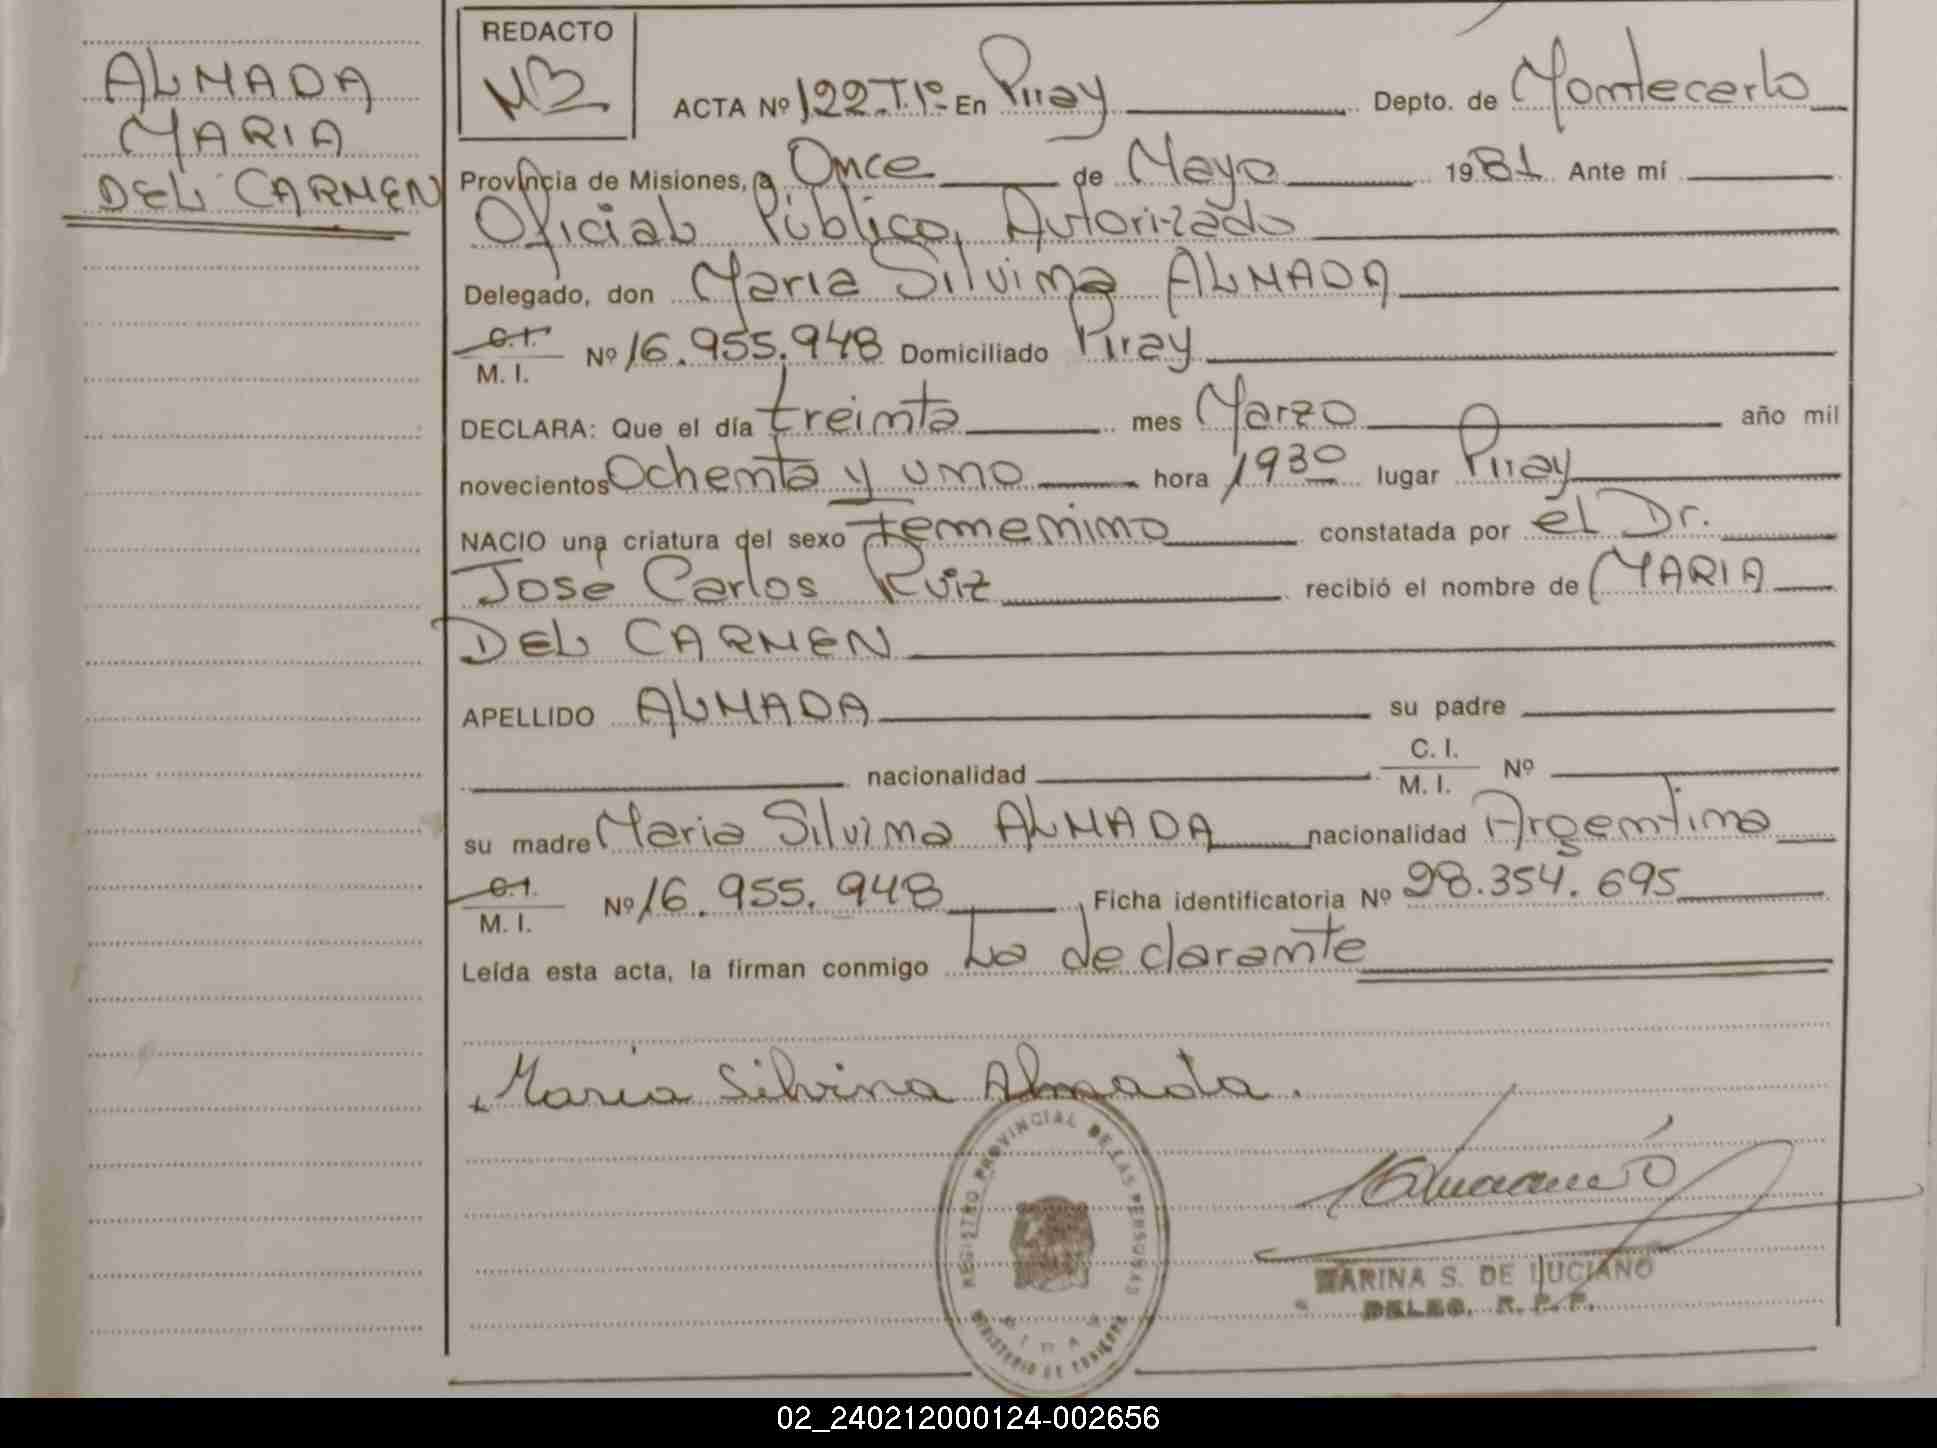 ALMADA
MARIA
DEL CARMEN
REDACTO
ACTA Nº 122 T.1º En Piray Depto. de Montecarlo
Provincia de Misiones, a Once de Mayo 1981 Ante mí
Oficial Público, Autorizado
Delegado, don Maria Silvina ALMADA
C.I.
M. I. Nº 16.955.948 Domiciliado Piray
DECLARA: Que el día treinta mes Marzo año mil
novecientos Ochenta y uno hora 1930 lugar Piray
NACIO una criatura del sexo femenino constatada por el Dr.
José Carlos Ruiz recibió el nombre de MARIA
DEL CARMEN
APELLIDO ALMADA su padre
nacionalidad C. I.
M. I. Nº
su madre Maria Silvina ALMADA nacionalidad Argentina
C.I.
M. I. Nº 16.955.948 Ficha identificatoria Nº 28.354.695
Leída esta acta, la firman conmigo La declarante
Maria Silvina Almada.
REGISTRO PROVINCIAL DE LAS PERSONAS
MINISTERIO DE GOBIERNO
MARINA S. DE LUCIANO
DELEG. R. P. P.
02_240212000124-002656